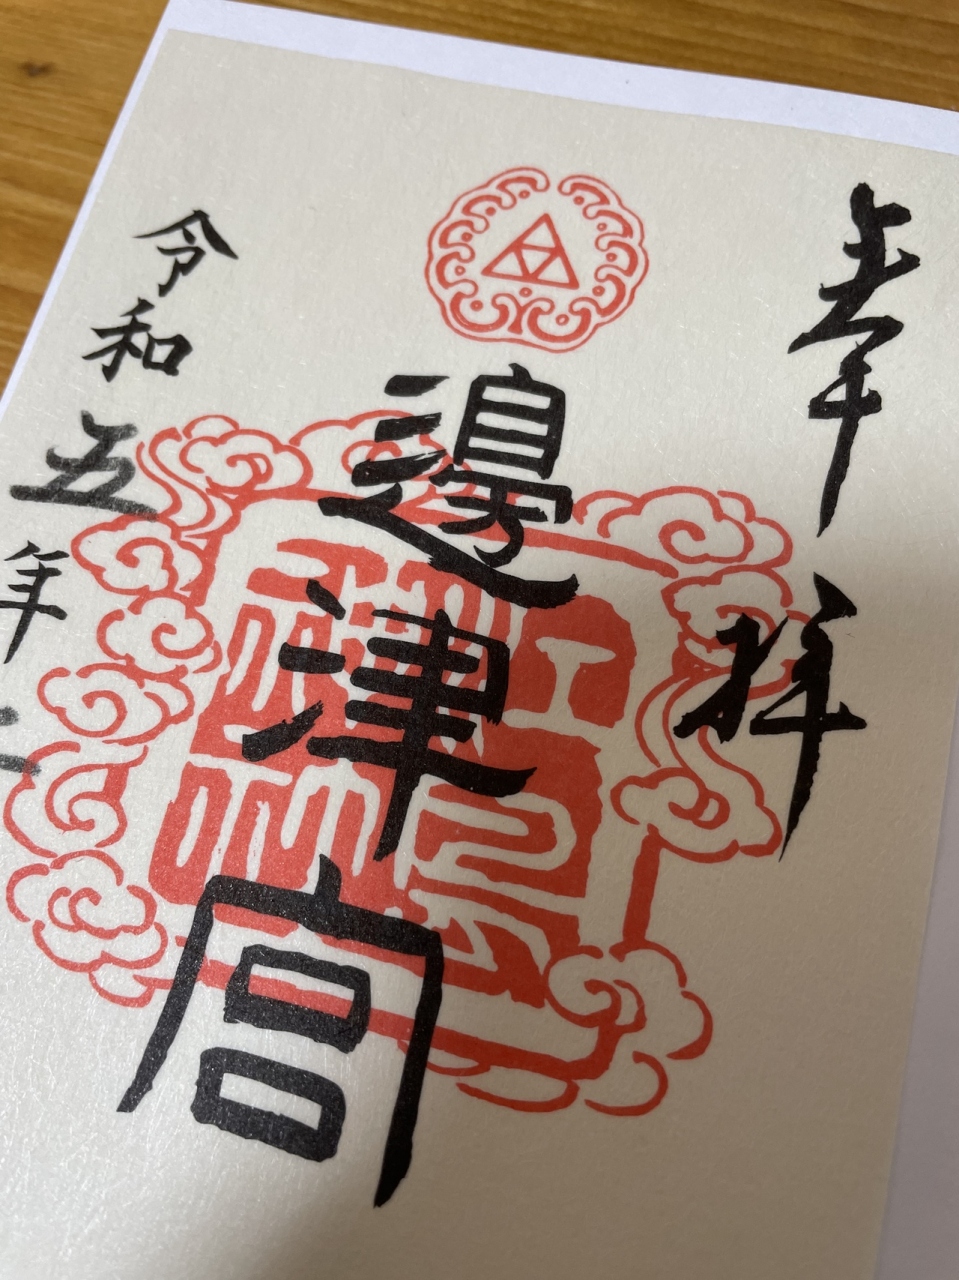 奉拝
邊津宮
令和五年二